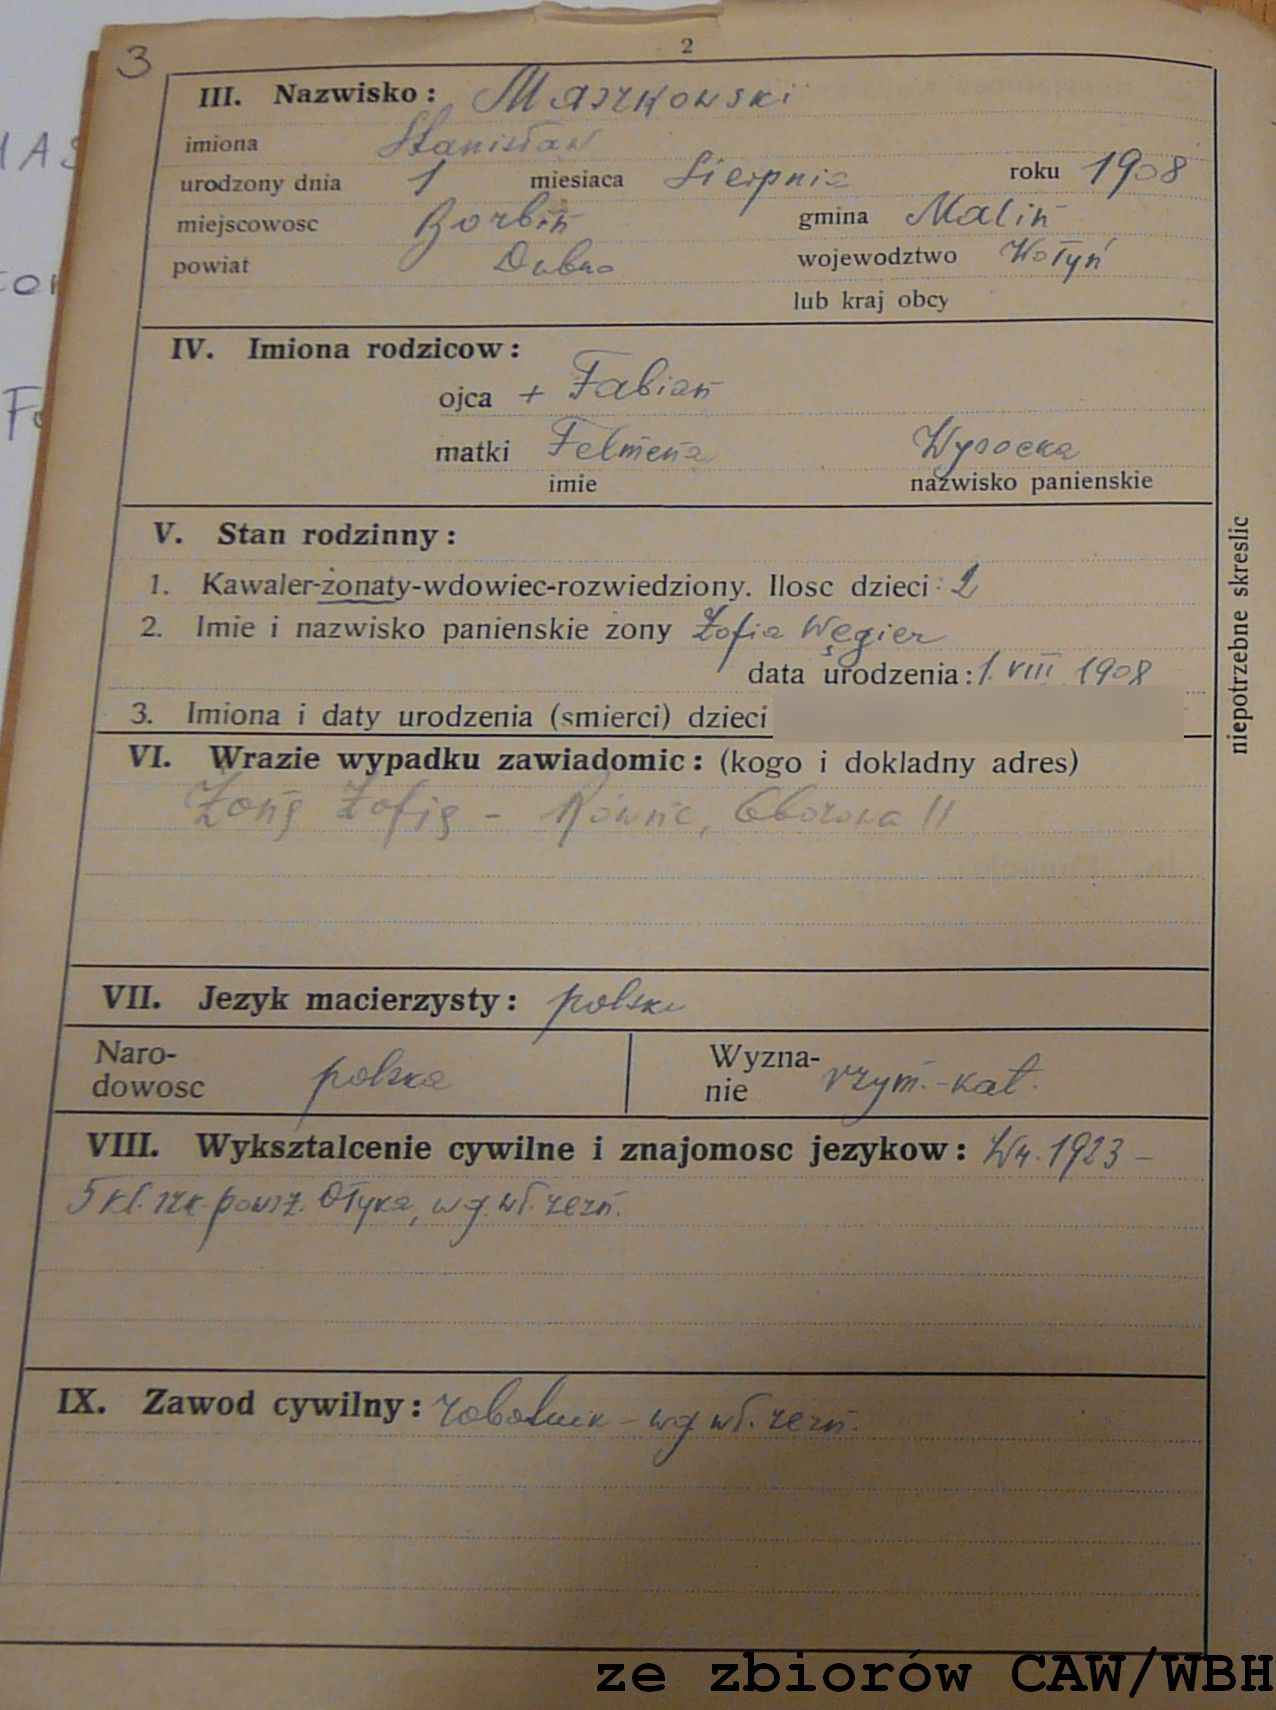 3
2
III. Nazwisko: Maszkowski
imiona Stanisław
urodzony dnia 1 miesiaca Sierpnia roku 1908
miejscowosc gmina Malin
powiat Dubno wojewodztwo Wołyń
lub kraj obcy
IV. Imiona rodzicow:
ojca + Fabian
matki Felmena Wysocka
imie nazwisko panienskie
V. Stan rodzinny:
1. Kawaler-zonaty-wdowiec-rozwiedziony. Ilosc dzieci: 2
2. Imie i nazwisko panienskie zony Zofia Węgier
data urodzenia: 1. VIII 1908
3. Imiona i daty urodzenia (smierci) dzieci
VI. Wrazie wypadku zawiadomic: (kogo i dokladny adres)
Żonę Zofię - Równe, 11
VII. Jezyk macierzysty: polski
Naro-
dowosc polska
Wyzna-
nie rzym.-kat.
VIII. Wyksztalcenie cywilne i znajomosc jezykow: W r. 1923 -
5 kl. szk. powsz. Ołyka, wg. wł. zezn.
IX. Zawod cywilny: robotnik - wg wł. zezn.
niepotrzebne skreslic
ze zbiorów CAW/WBH